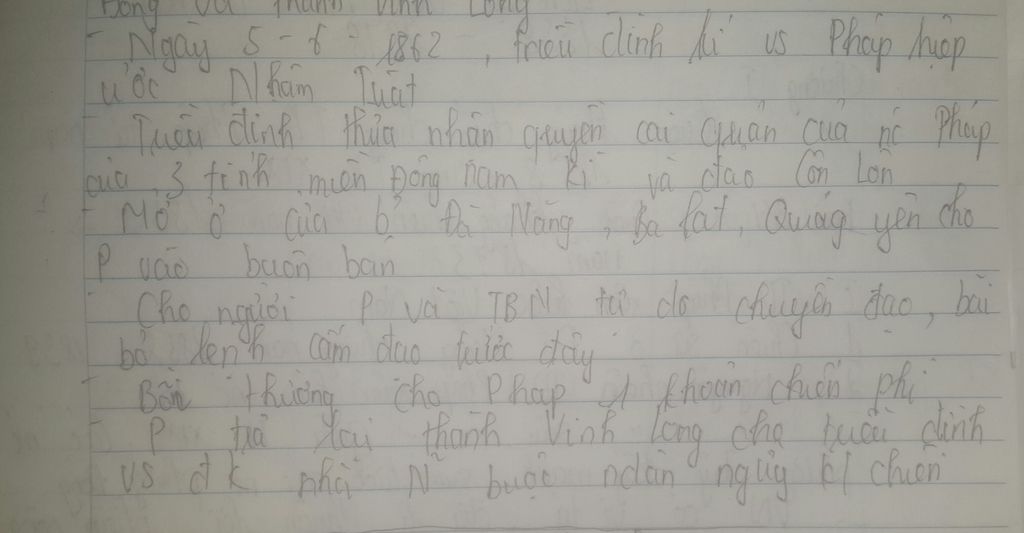 Đông và thành Vĩnh Long
- Ngày 5 - 6 - 1862, triều đình kí vs Pháp hiệp
ước Nhâm Tuất
- Triều đình thừa nhận quyền cai quản của nc Pháp
của 3 tỉnh miền Đông Nam Kì và đảo Côn Lôn
- Mở 3 cửa b Đà Nẵng, Ba Lạt, Quảng yên cho
P vào buôn bán
- Cho người P và TBN tự do truyền đạo, bãi
bỏ lệnh cấm đạo trước đây
- Bồi thường cho Pháp 1 khoản chiến phí
- P trả lại thành Vĩnh Long cho triều đình
vs đk nhà N buộc ndân ngừg k/ chiến